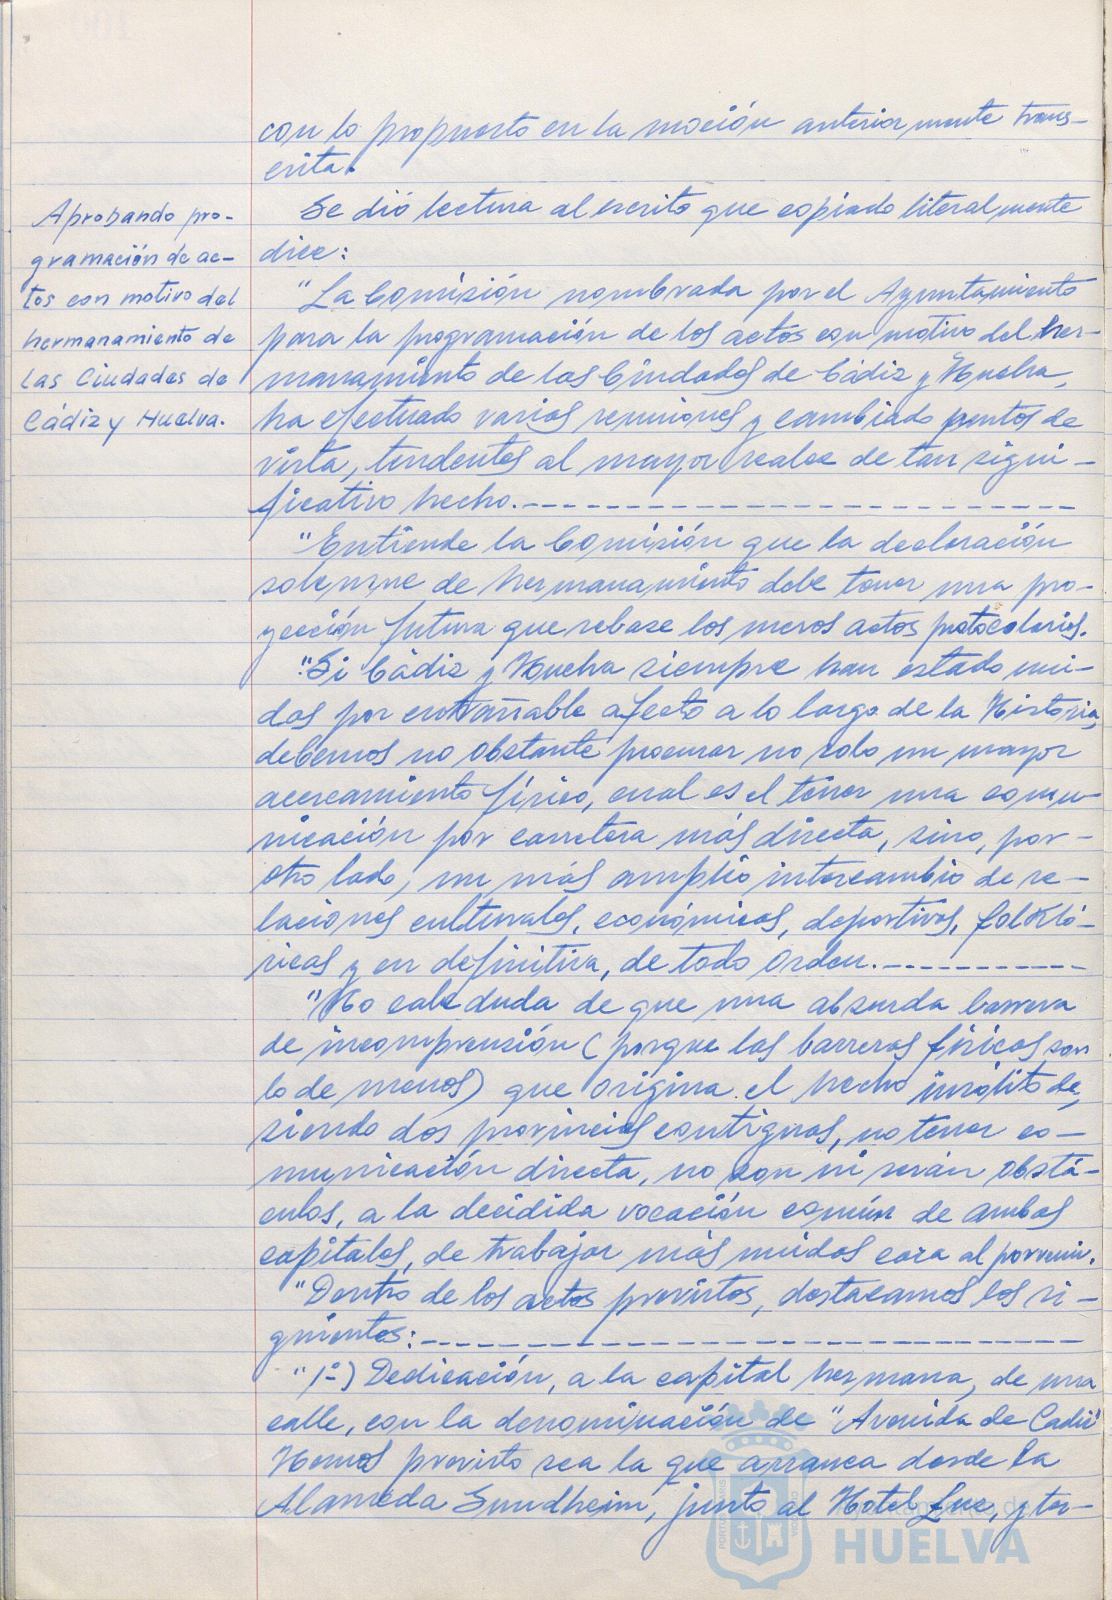 con lo propuesto en la moción anteriormente trans-
crita.
Aprobando pro-
gramación de ac-
tos con motivo del
hermanamiento de
las Ciudades de
Cádiz y Huelva.
Se dió lectura al escrito que copiado literalmente
dice:
"La Comisión nombrada por el Ayuntamiento
para la programación de los actos con motivo del her-
manamiento de las Ciudades de Cádiz y Huelva,
ha efectuado varias reuniones y cambiado puntos de
vista, tendentes al mayor realce de tan signi-
ficativo hecho.-------------------------
"Entiende la Comisión que la declaración
solemne de hermanamiento debe tener una pro-
yección futura que rebase los meros actos protocolarios.
"Si Cádiz y Huelva siempre han estado uni-
das por entrañable afecto a lo largo de la Historia,
debemos no obstante procurar no solo un mayor
acercamiento físico, cual es el tener una comu-
nicación por carretera más directa, sino, por-
otro lado, un más amplio intercambio de re-
laciones culturales, económicas, deportivas, folkló-
ricas y en definitiva, de todo orden.-----------
"No cabe duda de que una absurda barrera
de incomprensión (porque las barreras físicas son
lo de menos) que origina el hecho insólito de,
siendo dos provincias contiguas, no tener co-
municación directa, no son ni serán obstá-
culos, a la decidida vocación común de ambas
capitales, de trabajar más unidas cara al porvenir.
"Dentro de los actos previstos, destacamos los si-
guientes:------------------------------
"1º) Dedicación, a la capital hermana, de una
calle, con la denominación de "Avenida de Cadiz"
Hemos previsto sea la que arranca desde la
Alameda Sundheim, junto al Hotel Luz, y ter-
Ayuntamiento de
HUELVA